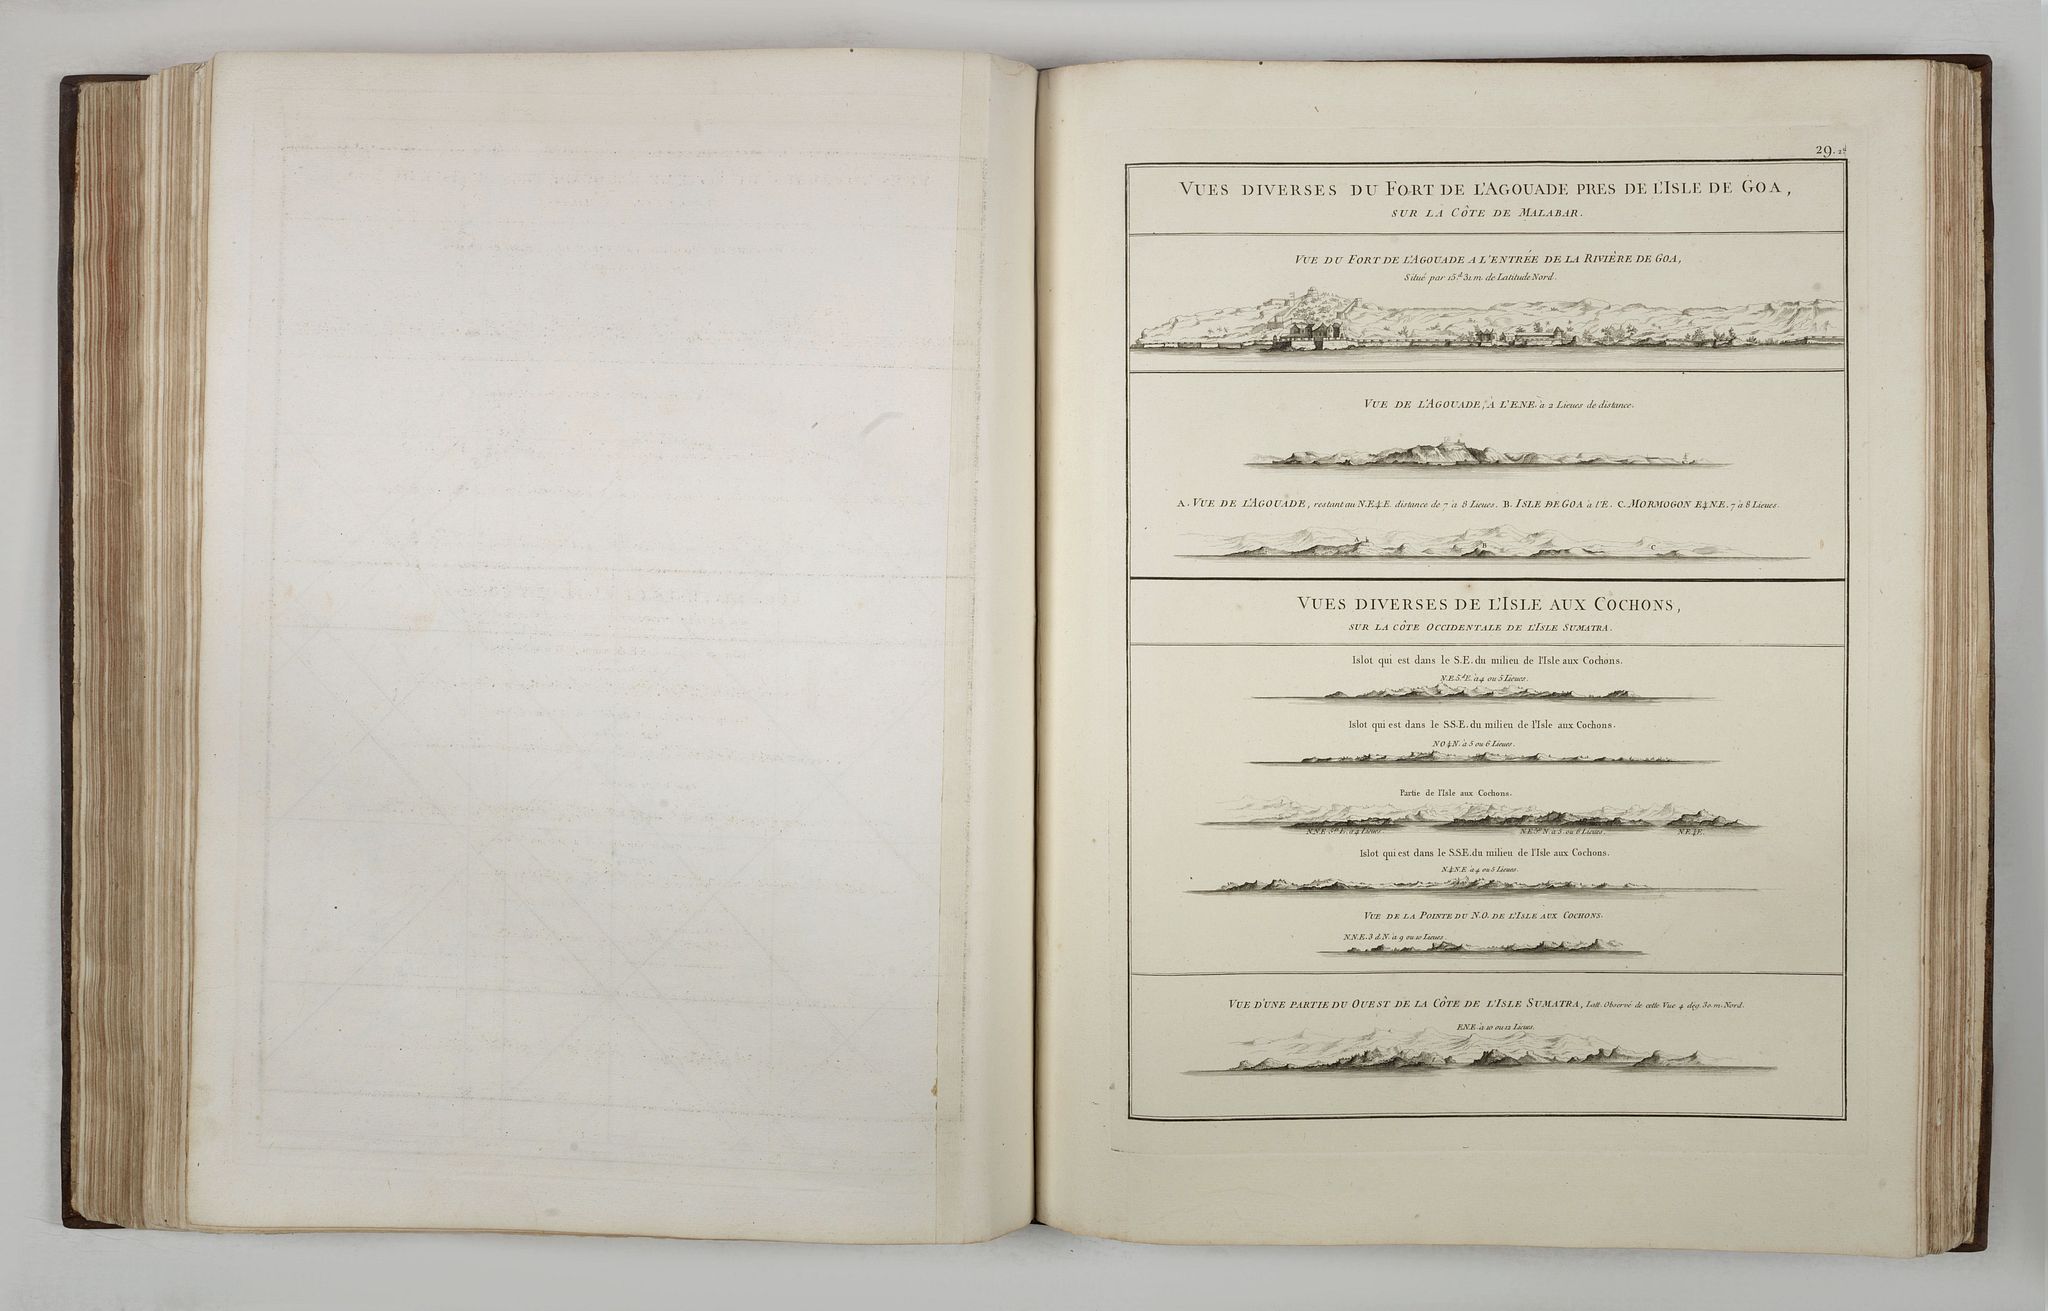 29. 2d
VUES DIVERSES DU FORT DE L'AGOUADE PRES DE L'ISLE DE GOA,
SUR LA CÔTE DE MALABAR.
VUE DU FORT DE L'AGOUADE A L'ENTRÉE DE LA RIVIÈRE DE GOA,
Situé par 15.d 31 m. de Latitude Nord.
VUE DE L'AGOUADE, A L'ENE. à 2 Lieues de distance.
A. VUE DE L'AGOUADE, restant au N.E¼E. distance de 7 à 8 Lieues. B. ISLE DE GOA à l'E. C. MORMOGON E¼N.E. 7 à 8 Lieues.
A B C
VUES DIVERSES DE L'ISLE AUX COCHONS,
SUR LA CÔTE OCCIDENTALE DE L'ISLE SUMATRA.
Islot qui est dans le S.E. du milieu de l'Isle aux Cochons.
N.E.5.d E. à 4 ou 5 Lieues.
Islot qui est dans le S.S.E. du milieu de l'Isle aux Cochons.
NO¼N. à 5 ou 6 Lieues.
Partie de l'Isle aux Cochons.
N.N.E. 5.d E. à 4 Lieues. N.E.5.d N. à 5. ou 6 Lieues. N.E¼E.
Islot qui est dans le S.S.E. du milieu de l'Isle aux Cochons.
N¼N.E à 4 ou 5 Lieues.
VUE DE LA POINTE DU N.O. DE L'ISLE AUX COCHONS.
N.N.E. 3 d. N. à 9 ou 10 Lieues.
VUE D'UNE PARTIE DU OUEST DE LA CÔTE DE L'ISLE SUMATRA, Latt. Observé de cette Vue 4 deg. 30. m. Nord.
E.N.E. à 10 ou 12 Lieues.